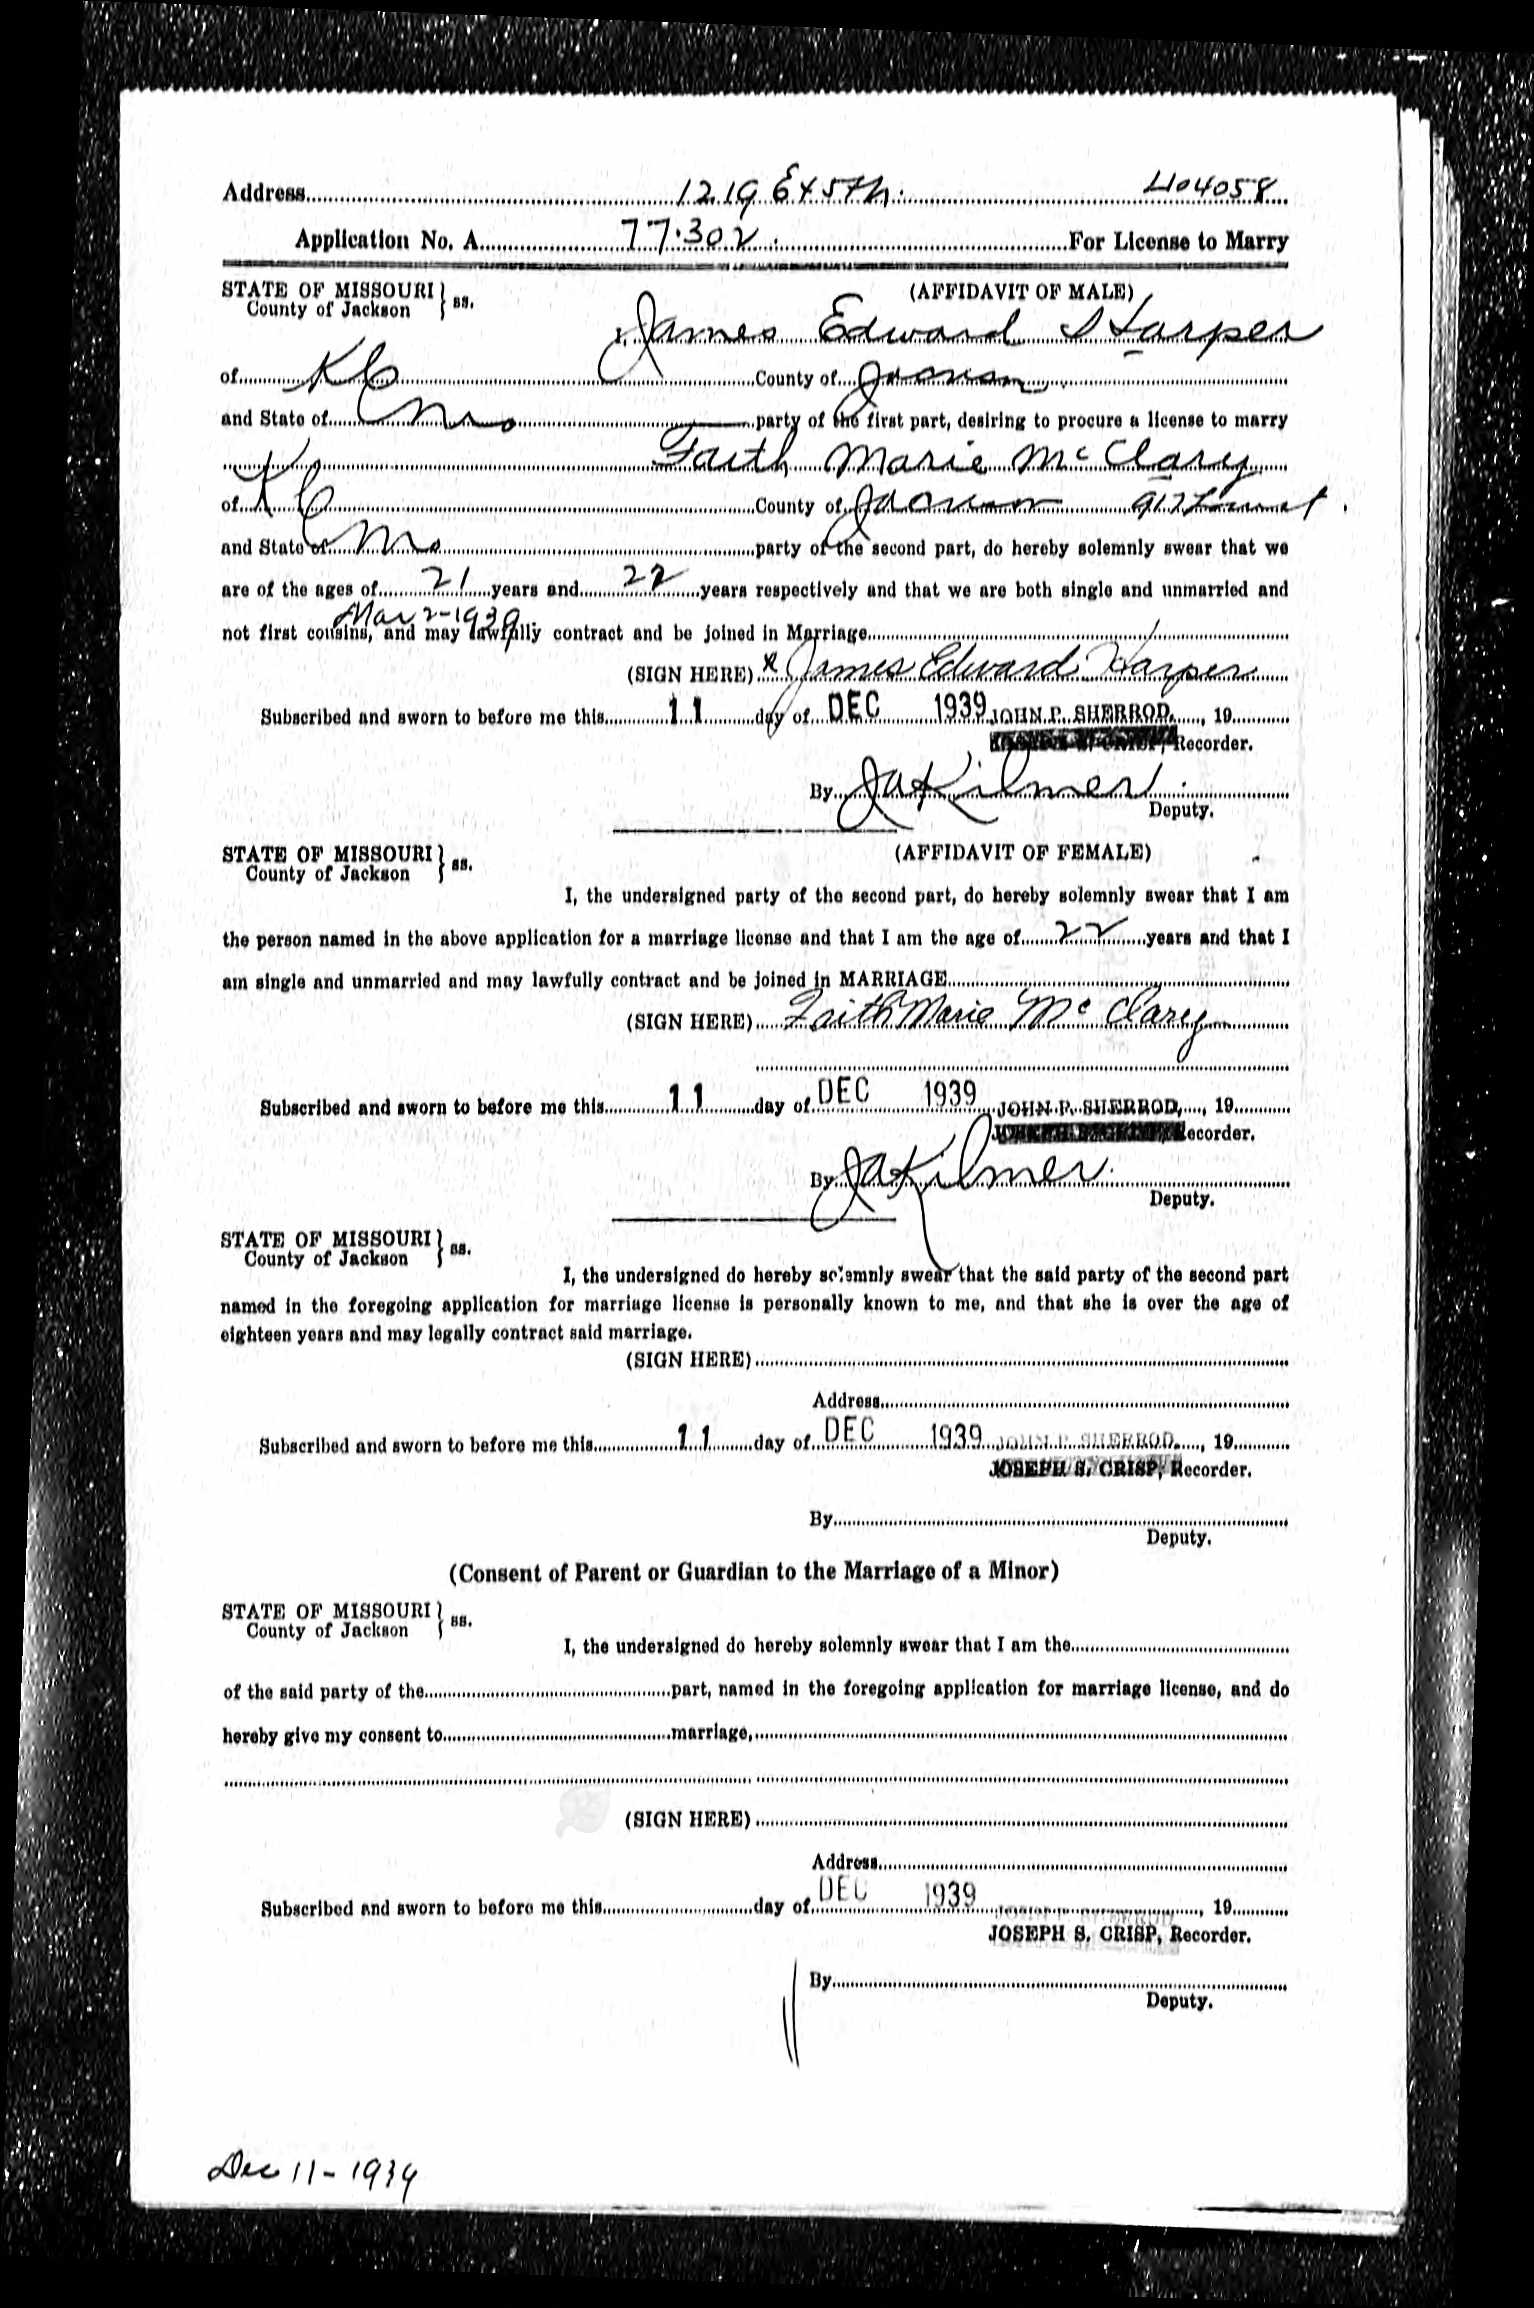 Address 1219 E 45th. 404058
Application No. A 77.302 For License to Marry
STATE OF MISSOURI } ss. (AFFIDAVIT OF MALE)
County of Jackson
I, James Edward Harper
of K C County of Jackson
and State of Mo party of the first part, desiring to procure a license to marry
Faith Marie McClary
of K C County of Jackson 917
and State of Mo party of the second part, do hereby solemnly swear that we
are of the ages of 21 years and 22 years respectively and that we are both single and unmarried and
Mar 2-1939
not first cousins, and may lawfully contract and be joined in Marriage
(SIGN HERE) x James Edward Harper
Subscribed and sworn to before me this 11 day of DEC 1939 JOHN P. SHERROD, , 19
Recorder.
By JA Kilmer
Deputy.
STATE OF MISSOURI } ss. (AFFIDAVIT OF FEMALE)
County of Jackson
I, the undersigned party of the second part, do hereby solemnly swear that I am
the person named in the above application for a marriage license and that I am the age of 22 years and that I
am single and unmarried and may lawfully contract and be joined in MARRIAGE
(SIGN HERE) Faith Marie McClarey
Subscribed and sworn to before me this 11 day of DEC 1939 JOHN P. SHERROD, , 19
Recorder.
By JA Kilmer.
Deputy.
STATE OF MISSOURI } ss.
County of Jackson
I, the undersigned do hereby solemnly swear that the said party of the second part
named in the foregoing application for marriage license is personally known to me, and that she is over the age of
eighteen years and may legally contract said marriage.
(SIGN HERE)
Address
Subscribed and sworn to before me this 11 day of DEC 1939 JOHN P. SHERROD, , 19
JOSEPH S. CRISP, Recorder.
By
Deputy.
(Consent of Parent or Guardian to the Marriage of a Minor)
STATE OF MISSOURI } ss.
County of Jackson
I, the undersigned do hereby solemnly swear that I am the
of the said party of the part, named in the foregoing application for marriage license, and do
hereby give my consent to marriage,
(SIGN HERE)
Address
Subscribed and sworn to before me this day of DEC 1939 JOHN P. SHERROD , 19
JOSEPH S. CRISP, Recorder.
By
Deputy.
Dec 11-1939